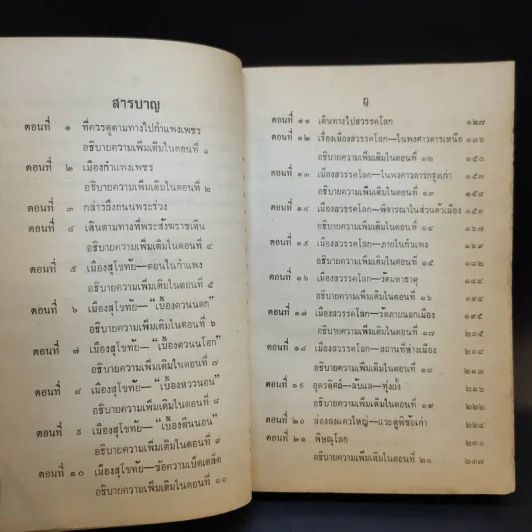 สารบาญ
ตอนที่ ๑ ที่ควรดูตามทางไปกำแพงเพชร
อธิบายความเพิ่มเติมในตอนที่ ๑
ตอนที่ ๒ เมืองกำแพงเพชร
อธิบายความเพิ่มเติมในตอนที่ ๒
ตอนที่ ๓ กล่าวถึงถนนพระร่วง
ตอนที่ ๔ เดินตามทางที่พระสังฆราชเดิน
อธิบายความเพิ่มเติมในตอนที่ ๔
ตอนที่ ๕ เมืองสุโขทัย—ตอนในกำแพง
อธิบายความเพิ่มเติมในตอนที่ ๕
ตอนที่ ๖ เมืองสุโขทัย—“เบื้องตวนตก”
อธิบายความเพิ่มเติมในตอนที่ ๖
ตอนที่ ๗ เมืองสุโขทัย—“เบื้องตวนโอก”
อธิบายความเพิ่มเติมในตอนที่ ๗
ตอนที่ ๘ เมืองสุโขทัย—“เบื้องหววนอน”
อธิบายความเพิ่มเติมในตอนที่ ๘
ตอนที่ ๙ เมืองสุโขทัย—“เบื้องตีนนอน”
อธิบายความเพิ่มเติมในตอนที่ ๙
ตอนที่ ๑๐ เมืองสุโขทัย—ข้อความเบ็ดเตล็ด
อธิบายความเพิ่มเติมในตอนที่ ๑๐
ตอนที่ ๑๑ เดินทางไปสวรรคโลก ๑๒๗
ตอนที่ ๑๒ เรื่องเมืองสวรรคโลก—ในพงศาวดารเหนือ ๑๓๖
อธิบายความเพิ่มเติมในตอนที่ ๑๒ ๑๕๐
ตอนที่ ๑๓ เมืองสวรรคโลก—ในพงศาวดารกรุงเก่า
อธิบายความเพิ่มเติมในตอนที่ ๑๓ ๑๕๘
ตอนที่ ๑๔ เมืองสวรรคโลก—พิจารณาในส่วนตัวเมือง ๑๕๙
อธิบายความเพิ่มเติมในตอนที่ ๑๔ ๑๖๗
ตอนที่ ๑๕ เมืองสวรรคโลก—ภายในกำแพง ๑๖๙
อธิบายความเพิ่มเติมในตอนที่ ๑๕
ตอนที่ ๑๖ เมืองสวรรคโลก—วัดมหาธาตุ
อธิบายความเพิ่มเติมในตอนที่ ๑๖
ตอนที่ ๑๗ เมืองสวรรคโลก—วัดภายนอกเมือง
อธิบายความเพิ่มเติมในตอนที่ ๑๗ ๒๐๕
ตอนที่ ๑๘ เมืองสวรรคโลก—สถานที่ห่างเมือง
อธิบายความเพิ่มเติมในตอนที่ ๑๘ ๒๑๓
ตอนที่ ๑๙ อุตรดิตถ์—ลับแล—ทุ่งยั้ง ๒๑๖
อธิบายความเพิ่มเติมในตอนที่ ๑๙ ๒๒๒
ตอนที่ ๒๐ ล่องลงแควใหญ่—แวะดูพิชัยเก่า
ตอนที่ ๒๑ พิษณุโลก
อธิบายความเพิ่มเติมในตอนที่ ๒๑ ๒๓๗